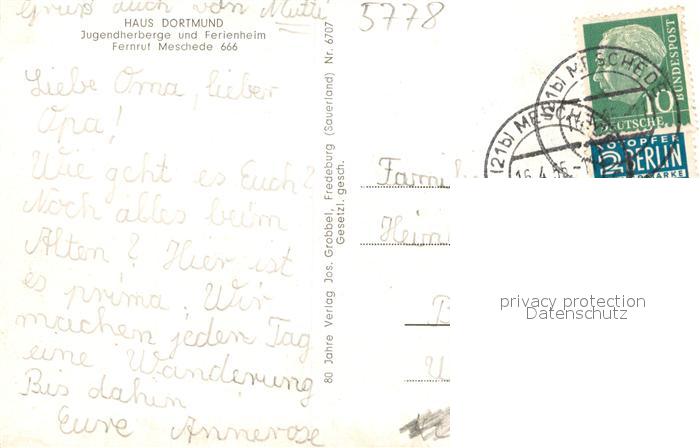 Gruß auch von Mutti
HAUS DORTMUND
Jugendherberge und Ferienheim
Fernruf Meschede 666
Liebe Oma, lieber
Opa!
Wie geht es Euch?
Noch alles beim
Alten? Hier ist
es prima. Wir
machen jeden Tag
eine Wanderung
Bis dahin
Eure Annerose
80 Jahre Verlag Jos. Grobbel, Fredeburg (Sauerland) Nr. 6707
Gesetzl. gesch.
5778
10
BUNDESPOST
DEUTSCHE
NOTOPFER
2 BERLIN
(21b) MESCHEDE
(21b) MESCHEDE
Fami
Hein
B
U
privacy protection
Datenschutz